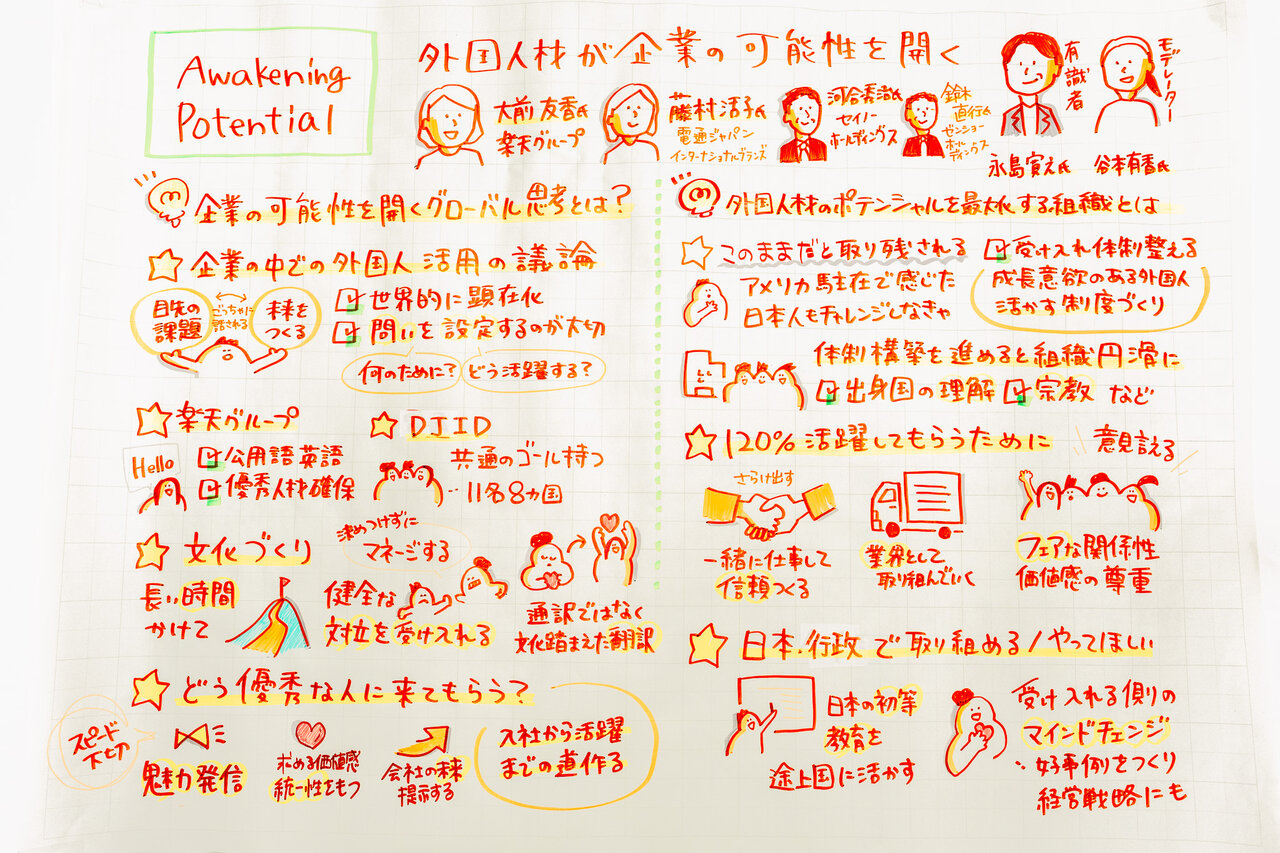 Awakening
Potential
外国人材が企業の可能性を開く
大前 友香氏
楽天グループ
藤村 活子氏
電通ジャパン
インターナショナルブランズ
河合秀治氏
セイノー
ホールディングス
鈴木
直行氏
ゼンショー
ホール
ディングス
有識者
永島寛之氏
モデレーター
谷本有香氏
企業の可能性を開くグローバル思考とは?
企業の中での外国人活用の議論
目先の
課題
ごっちゃに
話される
未来を
つくる
世界的に顕在化
問いを設定するのが大切
何のために?
どう活躍する?
楽天グループ
Hello
公用語英語
優秀人材確保
DJID
共通のゴール持つ
11名8カ国
文化づくり
決めつけずに
マネージする
長い時間
かけて
健全な
対立を受け入れる
通訳ではなく
文化踏まえた翻訳
どう優秀な人に来てもらう?
スピード
大切
魅力発信
求める価値感
統一性をもつ
会社の未来
提示する
入社から活躍
までの道作る
外国人材のポテンシャルを最大化する組織とは
このままだと取り残される
アメリカ駐在で感じた
日本人もチャレンジしなきゃ
受け入れ体制整える
成長意欲のある外国人
活かす制度づくり
体制構築を進めると組織円滑に
出身国の理解
宗教 など
120%活躍してもらうために
さらけ出す
一緒に仕事して
信頼つくる
業界として
取り組んでいく
意見言える
フェアな関係性
価値感の尊重
日本・行政で取り組める/やってほしい
日本の初等
教育を
途上国に活かす
受け入れる側の
マインドチェンジ
好事例をつくり
経営戦略にも